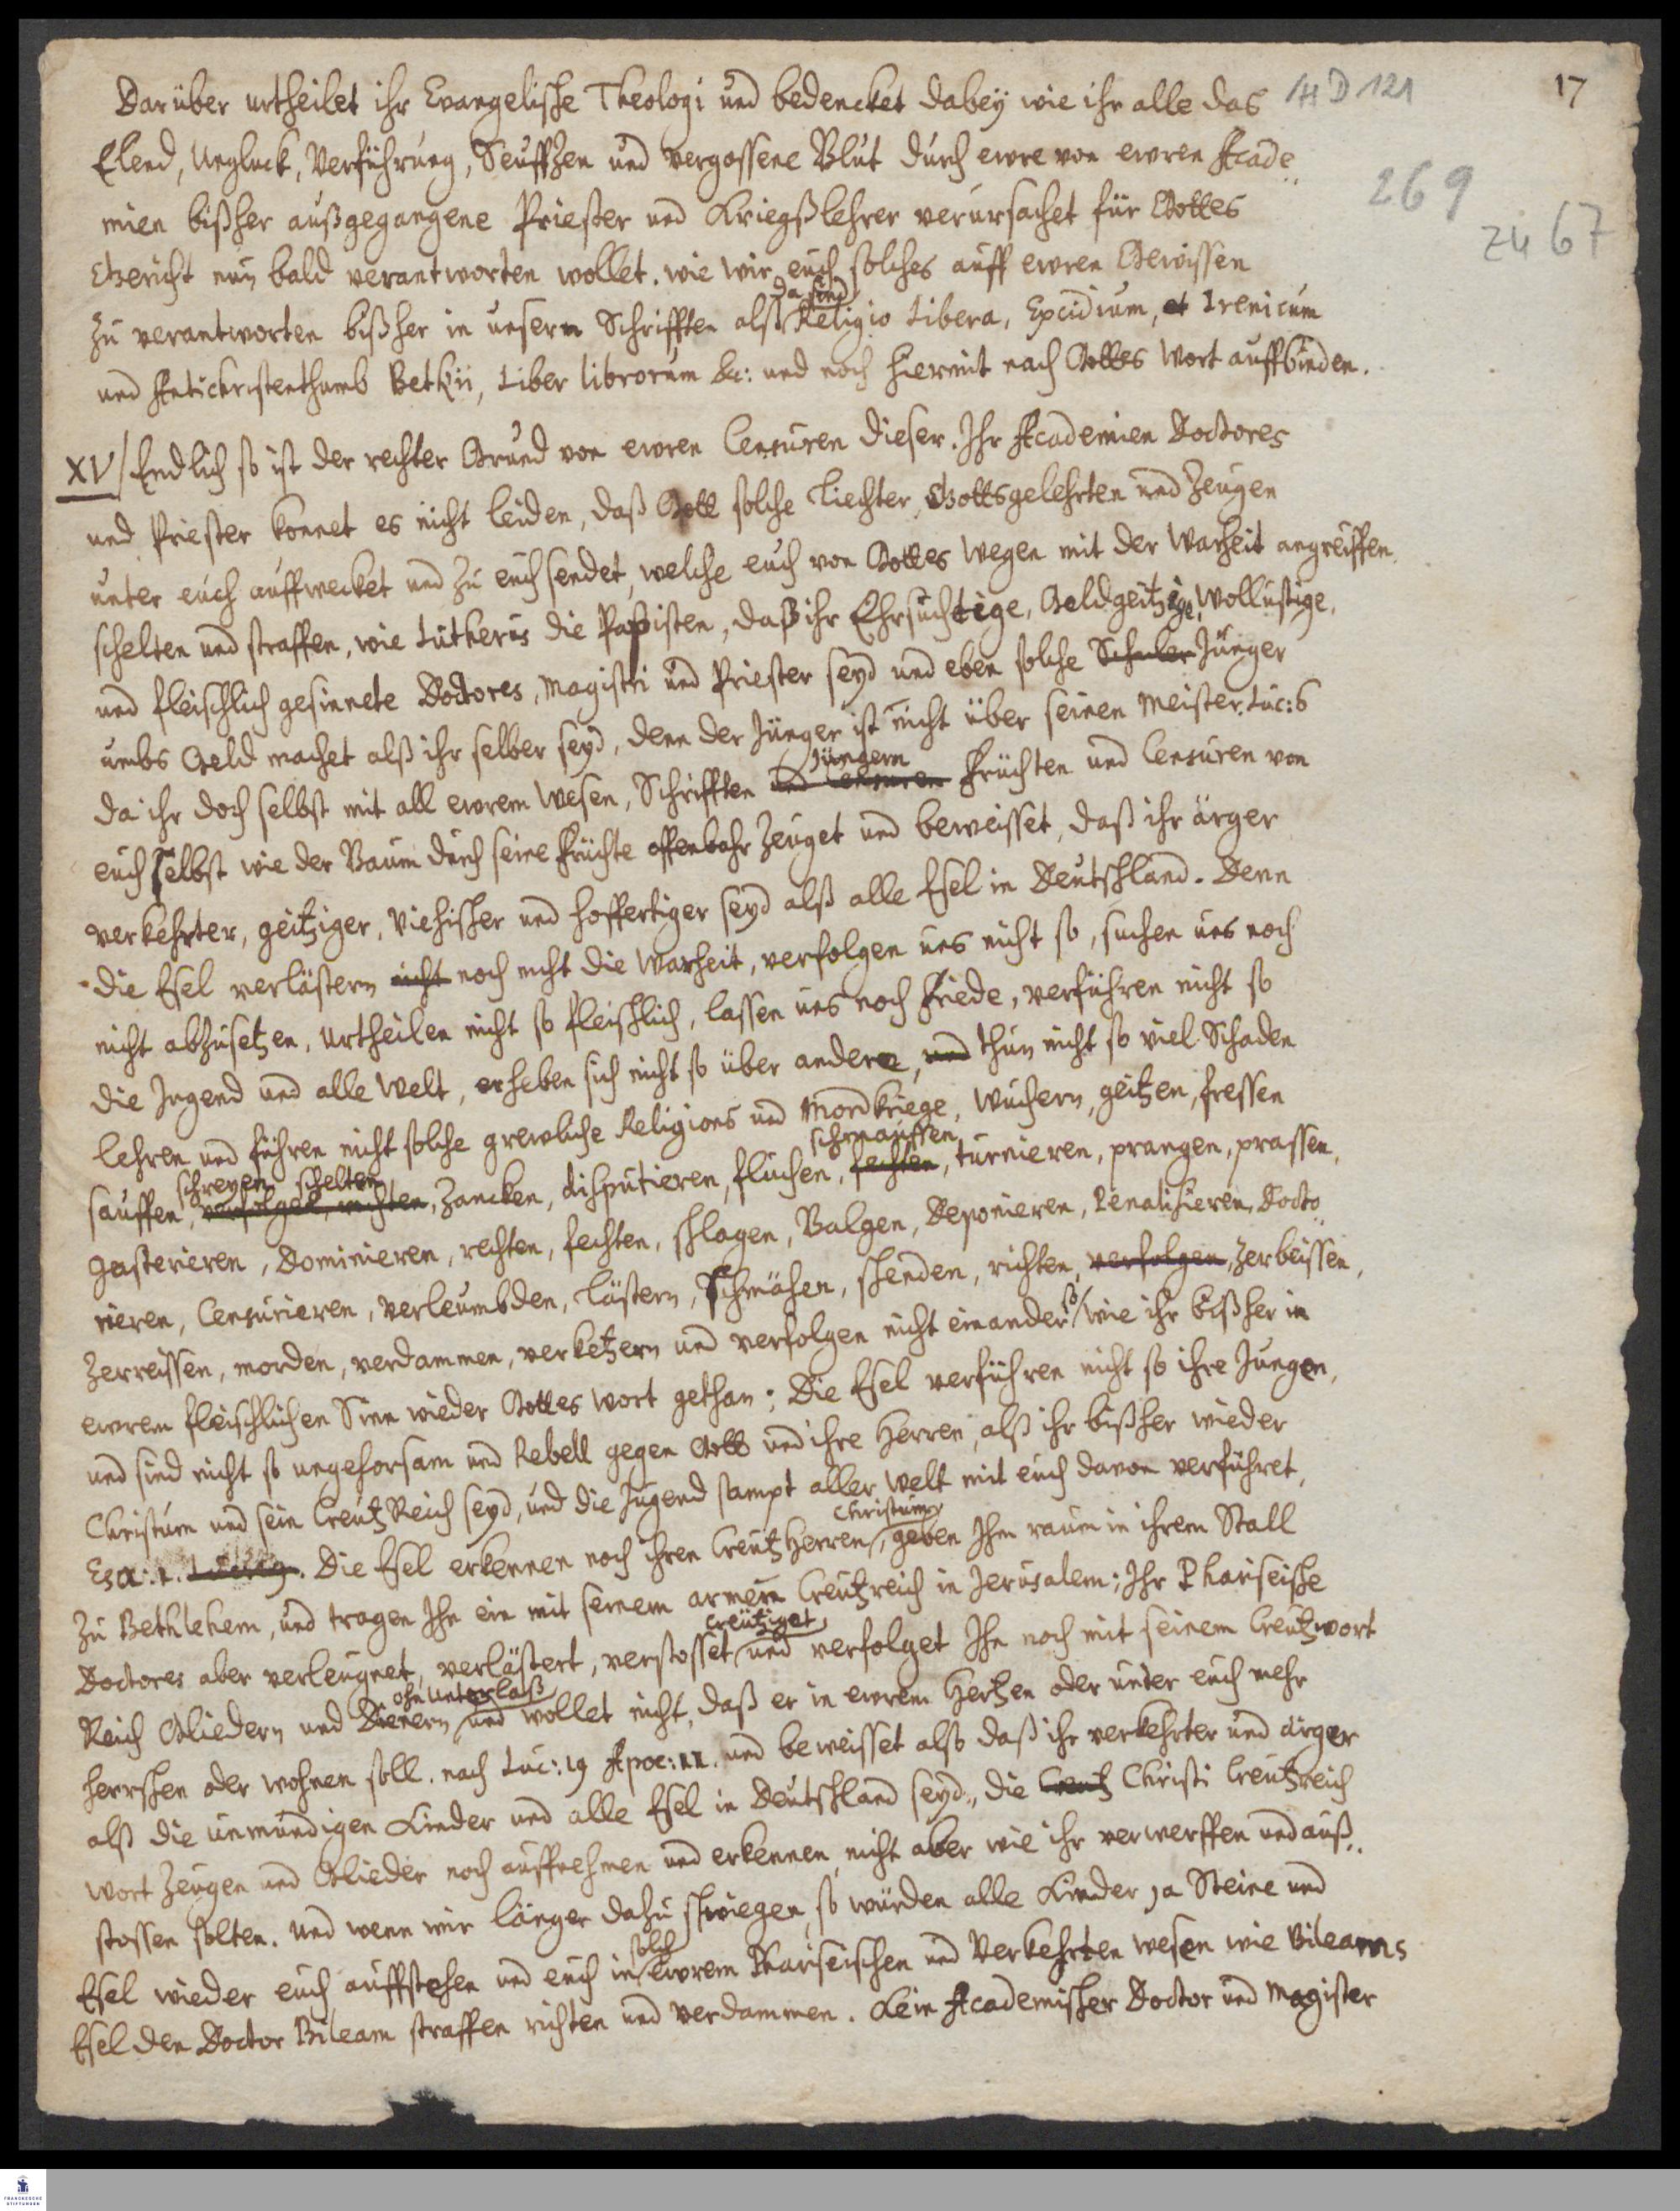 Darüber urtheilet ihr Evangelische Theologi und bedencket dabey wie ihr alle das HD 121 17
Elend, Ungluck, Verführung, Seuffzen und vergossene Blut durch ewre von ewren Acade
269
mien bißher außgegangene Priester und Kriegßlehrer verursachet für Gottes
z4 67
Gericht nun bald verantworten wollet. wie wir euch solches auff ewren Gewissen
da sind
zu verantworten bißher in unsern Schrifften alß Religio Libera, Excidium, et Irenicum
und Antichristenthumb Betkii, Liber librorum &c: und noch hiermit nach Gottes Wort auffbinden.
XV/ Endlich so ist der rechter Grund von ewren Censuren dieser. Ihr Academien Doctores
und Priester konnet es nicht leiden, daß Gott solche Liechter, Gottsgelehrten und Zeugen
unter euch auffwecket und zu euch sendet, welche euch von Gottes wegen mit der Warheit angreiffen
schelten und straffen, wie Lutherus die Papisten, daß ihr Ehrsuchtige, Geldgeitzige, Wollustige,
und fleischlich gesinnete Doctores, Magistri und Priester seyd und eben solche Schuler Jünger
umbs Geld machet alß ihr selber seyd, denn der Jünger ist nicht über seinen Meister. Luc: 6
Jüngern
da ihr doch selbst mit all ewrem Wesen, Schrifften und Censuren Früchten und Censuren von
euch selbst wie der Baum durch seine Früchte offenbahr zeuget und beweisset, daß ihr ärger
verkehrter, geitziger, Viehischer und hoffertiger seyd alß alle Esel in Deutschland. Denn
die Esel verlästern nicht noch nicht die Warheit, verfolgen uns nicht so, suchen uns noch
nicht abzusetzen, urtheilen nicht so fleischlich, lassen uns noch Friede, verführen nicht so
die Jugend und alle Welt, erheben sich nicht so über andere, und thun nicht so viel Schaden
lehren und führen nicht solche grewliche Religions und Mordkriege, wuchern, geitzen, fressen
schreyen schelten schmaussen
sauffen, verfolgen, rechten, zancken, disputieren, fluchen, fechten, turnieren, prangen, prassen,
gasterieren, Dominieren, rechten, fechten, schlagen, Balgen, Deponieren, Penalisieren, Docto
rieren, Censurieren, verleumbden, lästern, schmähen, schenden, richten, verfolgen, zerbeissen,
so
zerreissen, morden, verdammen, verketzern und verfolgen nicht einander wie ihr bißher in
ewrem fleischlichen Sinn wieder Gottes Wort gethan; Die Esel verführen nicht so ihre Jungen,
und sind nicht so ungehorsam und Rebell gegen Gott und ihre Herren, alß ihr bißher wieder
Christum und sein Creutz Reich seyd, und die Jugend sampt aller Welt mit euch davon verführet,
Christum
Esa: 1. Die Esel erkennen noch ihren Creutz Herren, geben Ihm raum in ihrem Stall
zu Bethlehem, und tragen Ihn ein mit seinem armen Creutzreich in Jerusalem; Ihr Phariseische
creutziget
Doctores aber verleugnet, verlästert, verstosset und verfolget Ihn noch mit seinem Creutzwort
ohn unterlaß
Reich Gliedern und Dienern und wollet nicht, daß er in ewrem Hertzen oder unter euch mehr
herrschen oder wohnen soll. nach Luc: 19 Apoc: 11. und beweisset also daß ihr verkehrter und ärger
alß die unmündigen Kinder und alle Esel in Deutschland seyd, die Creutz Christi Creutzreich
Wort Zeugen und Glieder noch auffnehmen und erkennen, nicht aber wie ihr verwerffen und auß
stossen solten. und wenn wir länger dazu schwiegen, so würden alle Kinder ja Steine und
solch
Esel wieder euch auffstehen und euch in ewrem Phariseischen und Verkehrten wesen wie Bileams
Esel den Doctor Bileam straffen richten und verdammen. Kein Academischer Doctor und Magister
FRANCKESCHE STIFTUNGEN